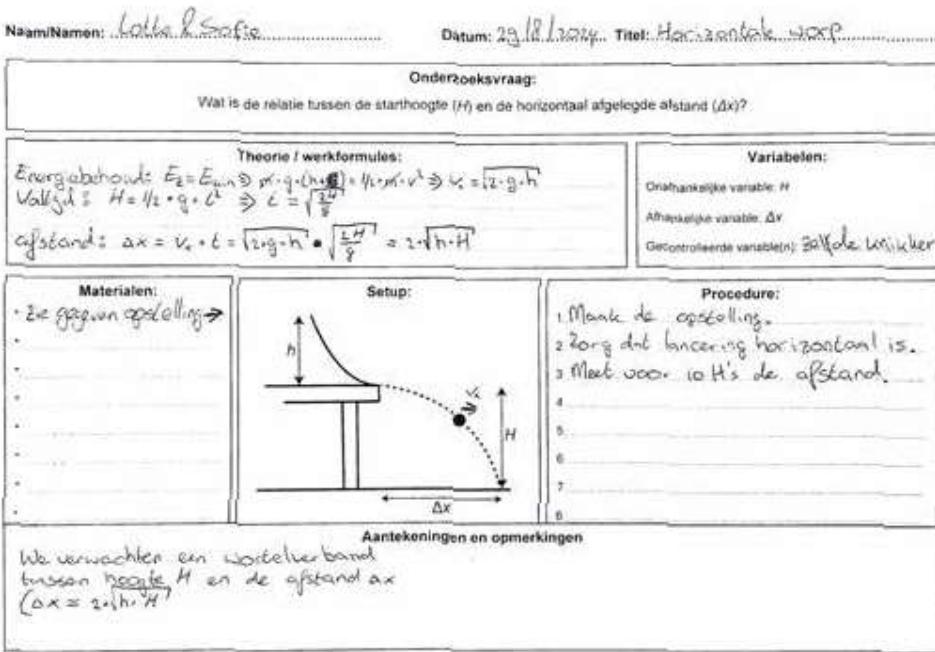 Naam/Namen: Lotte & Sofie Datum: 29/8/2024 Titel: Horizontale worp
Onderzoeksvraag:
Wat is de relatie tussen de starthoogte (H) en de horizontaal afgelegde afstand (Δx)?
Theorie / werkformules:
Energiebehoud: Ez = Ekin ⇒ m·g·(h+ = 1/2·m·v² ⇒ vx = √2·g·h
Valtijd: H = 1/2·g·t² ⇒ t = √2H/g
afstand: Δx = vx·t = √2·g·h · √2H/g = 2·√h·H
Variabelen:
Onafhankelijke variable: H
Afhankelijke variable: Δx
Gecontroleerde variable(n): Zelfde knikker
Materialen:
· Zie gegeven opstelling →
Setup:
h
vx
H
Δx
Procedure:
1 Maak de opstelling.
2 Zorg dat lancering horizontaal is.
3 Meet voor 10 H's de afstand.
4
5
6
7
8
Aantekeningen en opmerkingen
We verwachten een wortelverband
tussen hoogte H en de afstand Δx
(Δx = 2·√h·H